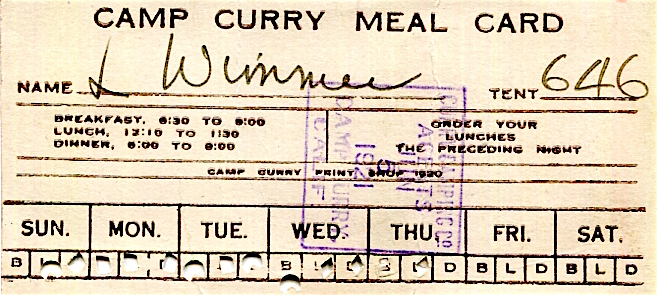 CAMP CURRY MEAL CARD
NAME L Wimmer TENT 646
BREAKFAST, 6:30 TO 8:00
LUNCH, 12:10 TO 1:30
DINNER, 6:00 TO 8:00
ORDER YOUR
LUNCHES
THE PRECEDING NIGHT
CAMP CURRY PRINT SHOP 1920
CURRY CAMPING CO
AGENTS
JUN
5
1921
CAMP CURRY
CALIF
SUN. MON. TUE. WED. THU. FRI. SAT.
B L D B L D B L D B L D B L D B L D B L D